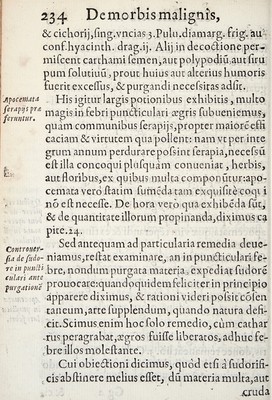 234 De morbis malignis,
& cichorij, sing. vncias 3. Pulu. diamarg. frig. au
conf. hyacinth. drag. ij. Alij in decoctione per-
miscent carthami semen, aut polypodiũ, aut siru
pum solutiuũ, prout huius aut alterius humoris
fuerit excessus, & purgandi necessitas adsit.
Apocemata
serapijs præ
feruntur.
His igitur largis potionibus exhibitis, multo
magis in febri puncticulari ægris subueniemus,
quàm communibus serapijs, propter maiorẽ effi
caciam & virtutem qua pollent: nam vt per inte
grum annum perdurare possint serapia, necessũ
est illa concoqui plusquàm conueniat, herbis,
aut floribus, ex quibus multa componũtur: apo-
cemata verò statim sumẽda tam exquisitè coqui
nõ est necesse. De hora verò qua exhibẽda sũt,
& de quantitate illorum propinanda, diximus ca
pite. 24.
Controuer-
sia de sudo-
re in pũcti
culari ante
purgationẽ
Sed antequam ad particularia remedia deue-
niamus, restat examinare, an in pũcticulari fe-
bre, nondum purgata materia, expediat sudorẽ
prouocare: quandoquidem feliciter in principio
apparere diximus, & rationi videri possit cõsen
taneum, arte supplendum, quando natura defi-
cit. Scimus enim hoc solo remedio, cùm cathar
rus peragrabat, ægros fuisse liberatos, adhuc fe-
bre illos molestante.
Cui obiectioni dicimus, quòd etsi à sudorifi-
cis abstinere melius esset, dũ materia multa, aut
cruda